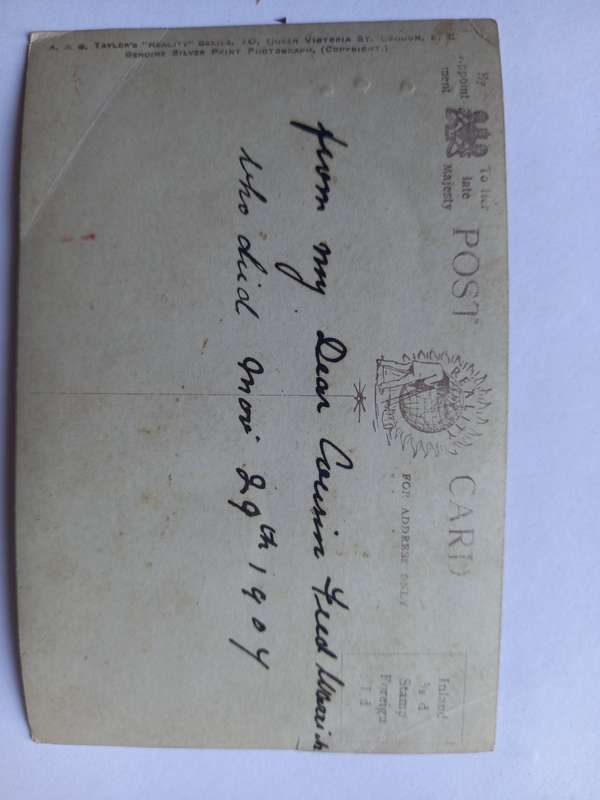 By
Appoint
ment
To Her
late
Majesty
POST CARD
REALITY
FOR ADDRESS ONLY
Inland
½ d
Stamp
Foreign
1 d
from my Dear Cousin Fred
who died Nov 29th 1904
A. & G. TAYLOR'S "REALITY" SERIES, 70, QUEEN VICTORIA ST. LONDON, E. C.
GENUINE SILVER PRINT PHOTOGRAPH, (COPYRIGHT.)